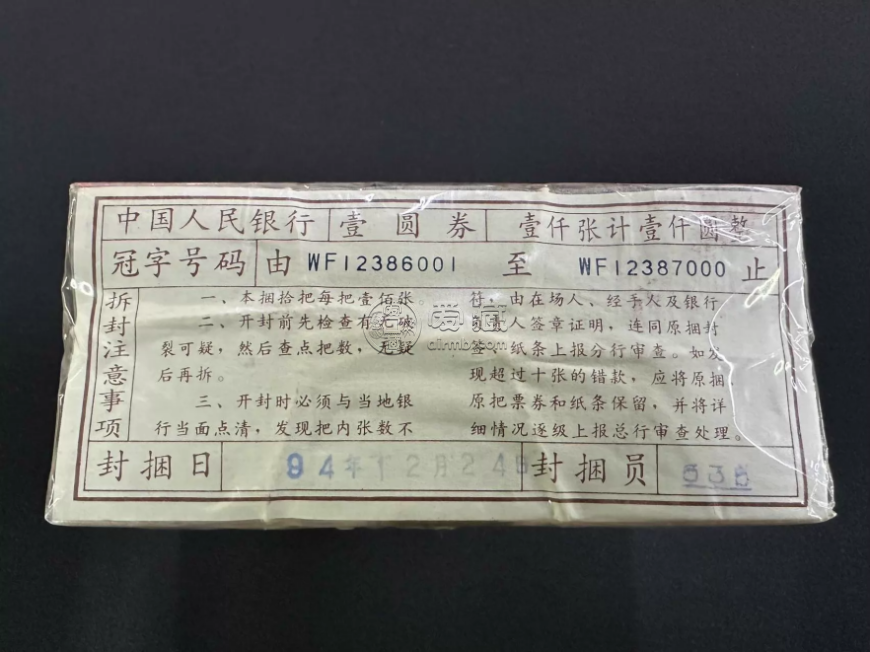 中国人民银行 壹圆券 壹仟张计壹仟圆整
冠字号码 由 WF12386001 至 WF12387000 止
拆封注意事项
一、本捆拾把每把壹佰张。
二、开封前先检查有无破
裂可疑，然后查点把数，无疑
后再拆。
三、开封时必须与当地银
行当面点清，发现把内张数不
符，由在场人、经手人及银行
负责人签章证明，连同原捆封
签、纸条上报分行审查。如发
现超过十张的错款，应将原捆、
原把票券和纸条保留，并将详
细情况逐级上报总行审查处理。
封捆日 94年12月24日 封捆员
爱藏
airmb.com